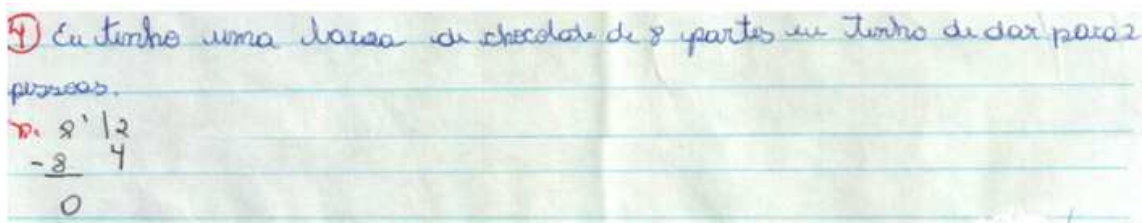 4) Eu tinho uma barra de chocolate de 8 partes eu tinho de dar para 2
pessoas.
R. 8' |2
-8 4
0